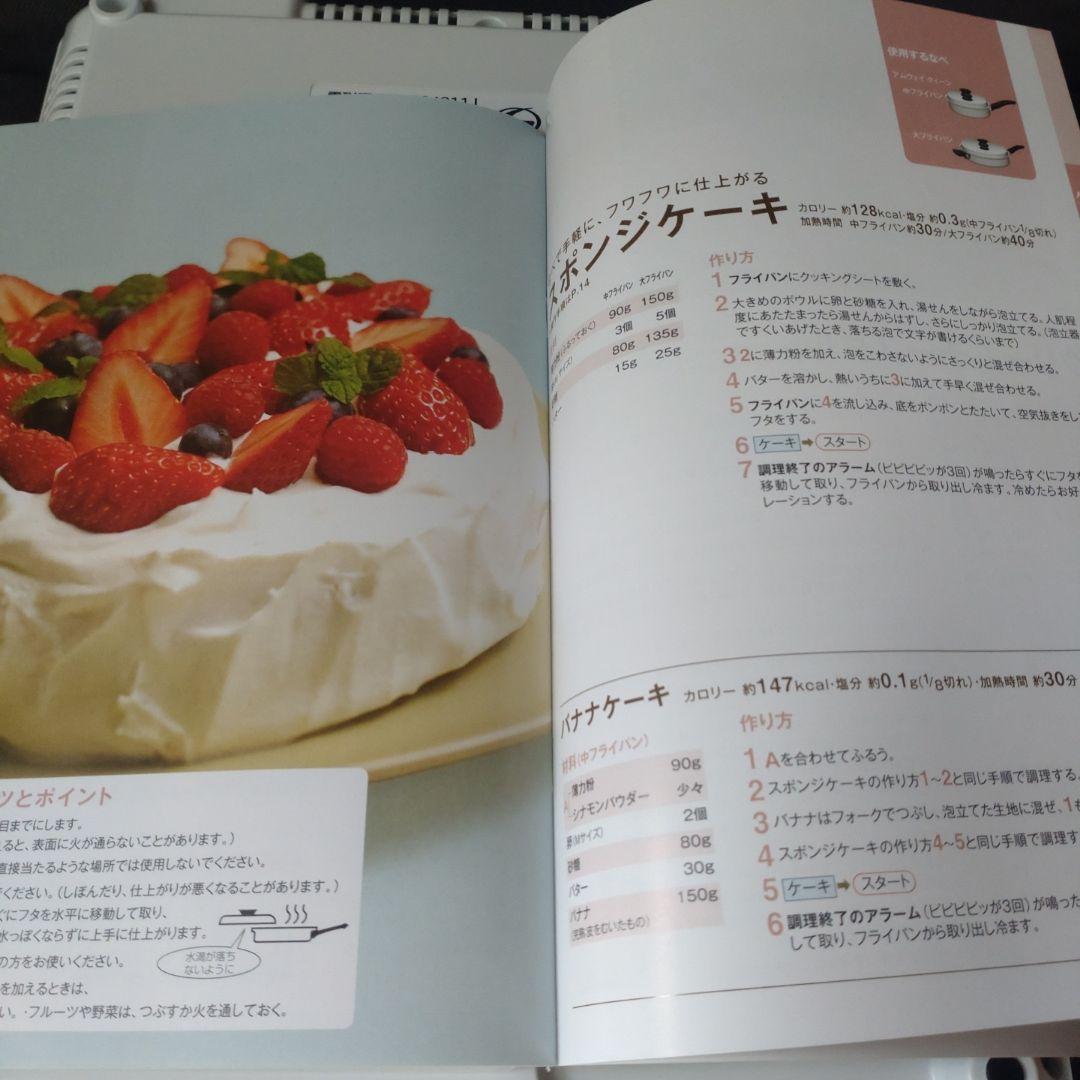 使用するなべ
アムウェイ クィーン
中フライパン
大フライパン
で手軽に、フワフワに仕上がる
スポンジケーキ
カロリー 約128kcal・塩分 約0.3g(中フライパン1/8切れ)
加熱時間 中フライパン約30分/大フライパン約40分
はP.14
中フライパン 大フライパン
90g 150g
3個 5個
80g 135g
15g 25g
作り方
1 フライパンにクッキングシートを敷く。
2 大きめのボウルに卵と砂糖を入れ、湯せんをしながら泡立てる。人肌程
度にあたたまったら湯せんからはずし、さらにしっかり泡立てる。(泡立器
ですくいあげたとき、落ちる泡で文字が書けるくらいまで)
3 2に薄力粉を加え、泡をこわさないようにさっくりと混ぜ合わせる。
4 バターを溶かし、熱いうちに3に加えて手早く混ぜ合わせる。
5 フライパンに4を流し込み、底をポンポンとたたいて、空気抜きをし
フタをする。
6 ケーキ ➡ スタート
7 調理終了のアラーム(ピピピピッが3回)が鳴ったらすぐにフタを
移動して取り、フライパンから取り出し冷ます。冷めたらお好
レーションする。
バナナケーキ カロリー 約147kcal・塩分 約0.1g(1/8切れ)・加熱時間 約30分
材料(中フライパン)
A 薄力粉 90g
シナモンパウダー 少々
卵(Mサイズ) 2個
砂糖 80g
バター 30g
バナナ 150g
(完熟:皮をむいたもの)
作り方
1 Aを合わせてふるう。
2 スポンジケーキの作り方1〜2と同じ手順で調理する。
3 バナナはフォークでつぶし、泡立てた生地に混ぜ、1も
4 スポンジケーキの作り方4〜5と同じ手順で調理す
5 ケーキ ➡ スタート
6 調理終了のアラーム(ピピピピッが3回)が鳴った
して取り、フライパンから取り出し冷ます。
ツとポイント
目までにします。
ると、表面に火が通らないことがあります。)
直接当たるような場所では使用しないでください。
ください。(しぼんだり、仕上がりが悪くなることがあります。)
ぐにフタを水平に移動して取り、
水っぽくならずに上手に仕上がります。
の方をお使いください。
水滴が落ち
ないように
を加えるときは、
い。・フルーツや野菜は、つぶすか火を通しておく。